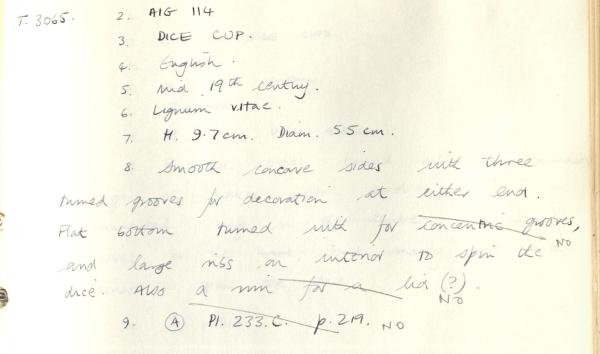 T. 3065. 2. AIG 114
3. DICE CUP.
4. English.
5. Mid 19th century.
6. Lignum vitae.
7. H. 9.7cm. Diam. 5.5 cm.
8. Smooth concave sides with three
turned grooves for decoration at either end.
Flat bottom turned with for concentric grooves, NO
and large ribs on interior to spin the
dice. Also a rim for a lid (?). NO
9. A Pl. 233.C. p.219. NO